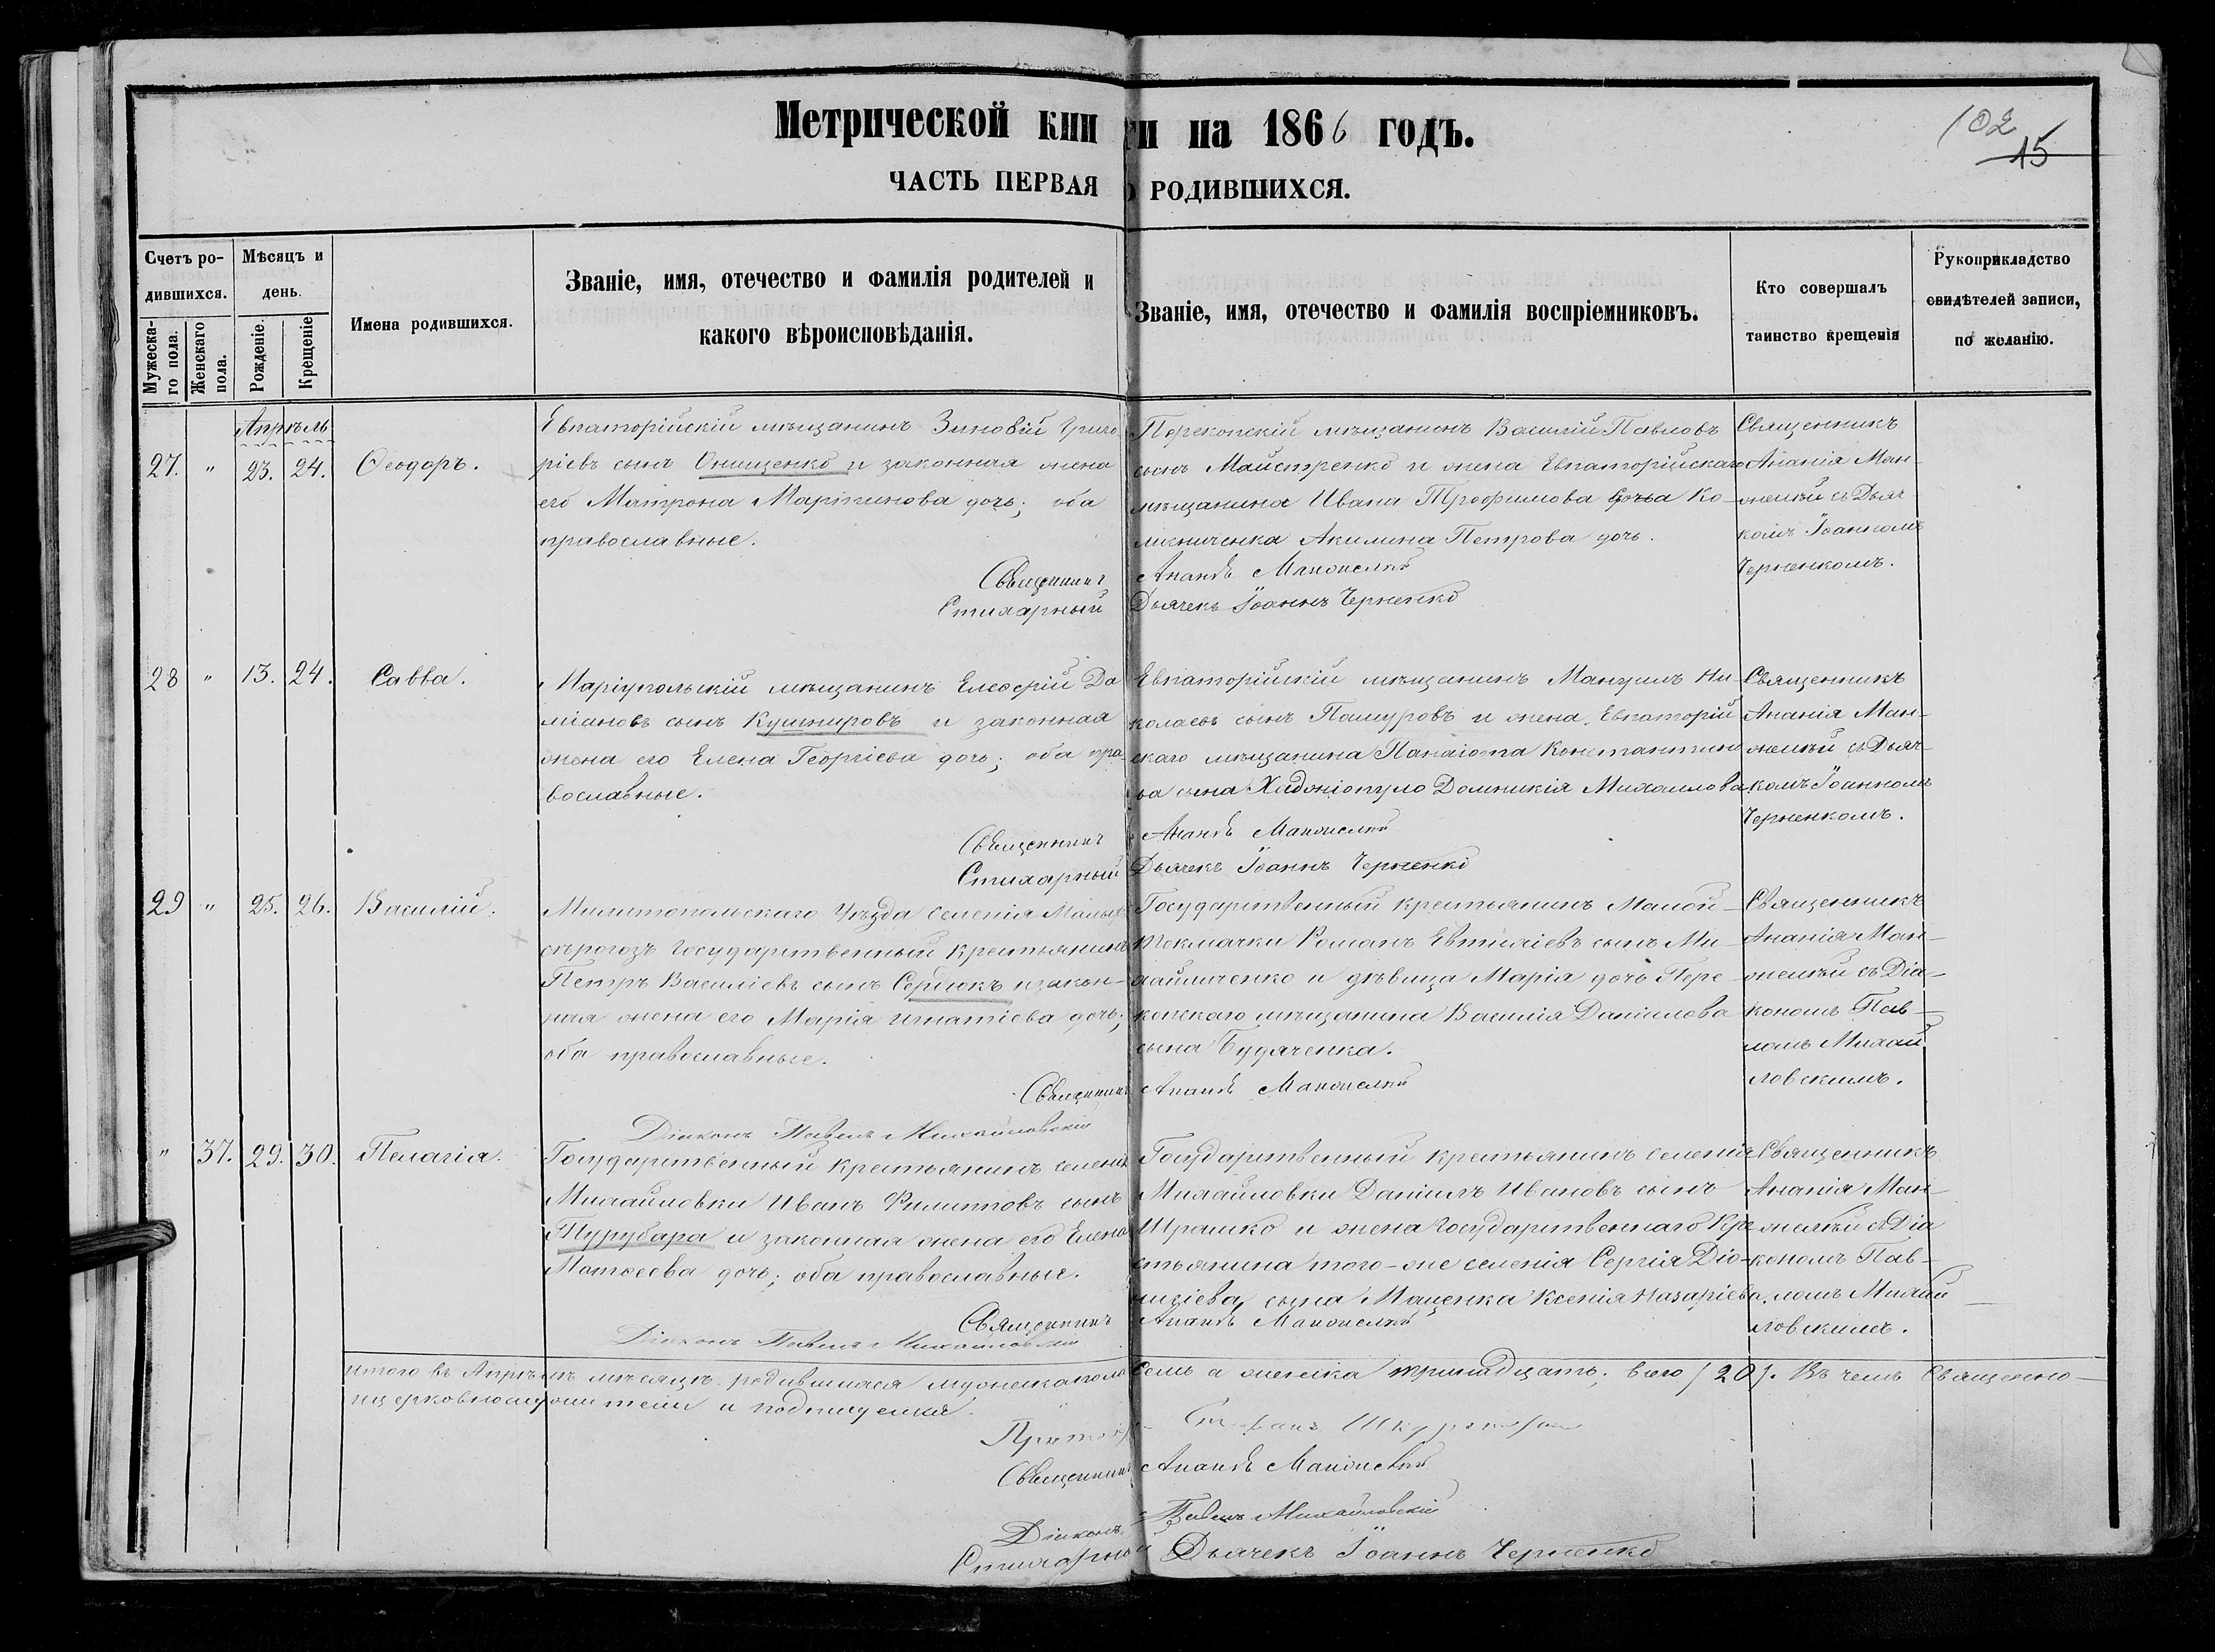 Метрической книги на 1866 годъ.
102
15
ЧАСТЬ ПЕРВАЯ О РОДИВШИХСЯ.
Счетъ родившихся.
Мужескаго пола.
Женскаго пола.
Мѣсяцъ и день.
Рожденіе.
Крещеніе
Имена родившихся.
Званіе, имя, отечество и фамилія родителей и
какого вѣроисповѣданія.
Званіе, имя, отечество и фамилія воспріемниковъ.
Кто совершалъ
таинство крещенія
Рукоприкладство
свидѣтелей записи,
по желанію.
Апрѣль
27. " 23. 24. Ѳеодоръ.
Евпаторійскій мѣщанинъ Зиновій Григо-
ріевъ сынъ Онищенко и законная жена
его Матрона Мартинова дочь; оба
православные.
Перекопскій мѣщанинъ Василій Павловъ
сынъ Майстренко и жена Евпаторійскаго
мѣщанина Ивана Трофимова Ко-
лисниченка Акилина Петрова дочь.
Священникъ
Ананія Ман-
желѣй съ Дьяч
комъ Іоанномъ
Черненкомъ.
Священникъ Ананія Манжелѣй
Стихарный Дьячекъ Іоаннъ Черненко
28 " 13. 24. Савва.
Маріупольскій мѣщанинъ Елевѳерій Да
міановъ сынъ Кушнировъ и законная
жена его Елена Георгіева дочь; оба пра-
вославные.
Евпаторійскій мѣщанинъ Мануилъ Ни-
колаевъ сынъ Пашуровъ и жена Евпаторій
скаго мѣщанина Панаіота Константино
ва сына Хидоніопуло Домникія Михаилова
Священникъ
Ананія Ман-
желѣй съ Дьяч-
комъ Іоанномъ
Черненкомъ.
Священникъ Ананія Манжелѣй
Стихарный Дьячекъ Іоаннъ Черненко
29 " 25. 26. Василій.
Милитопольскаго Уѣзда селенія Малыхъ
сѣрогозъ Государственный крестьянинъ
Петръ Василіевъ сынъ Сердюкъ и закон-
ная жена его Марія Игнатіева дочь;
оба православные.
Государственный крестьянинъ Малой-
Токмачки Романъ Евтихіевъ сынъ Ми-
хайличенко и дѣвица Марія дочь Пере-
копскаго мѣщанина Василія Даніилова
сына Будяченка.
Священникъ
Ананія Ман-
желѣй съ Діа-
кономъ Пав-
ломъ Михай
ловскимъ.
Священникъ Ананія Манжелѣй
Діаконъ Павелъ Михайловскій
" 37. 29. 30. Пелагія.
Государственный крестьянинъ селенія
Михайловки Иванъ Филипповъ сынъ
Турубара и законная жена его Елена
Матѳеева дочь; оба православные.
Государственный крестьянинъ селенія
Михайловки Даніилъ Ивановъ сынъ
Шрамко и жена Государственнаго Кре
стьянина того-же селенія Сергія Діо-
нисіева сына Маценка Ксенія Назаріева.
Священникъ
Ананія Ман-
желѣй съ Діа
кономъ Пав-
ломъ Михай
ловскимъ.
Священникъ Ананія Манжелѣй
Діаконъ Павелъ Михайловскій
итого въ Апрѣлѣ мѣсяцѣ родившихся мужеска пола семь а женска тринадцать; всего (20). Въ чемъ Священно-
и церковнослужители и подписуемся.
Священникъ Ананія Манжелѣй
Діаконъ Павелъ Михайловскій
Стихарный Дьячекъ Іоаннъ Черненко